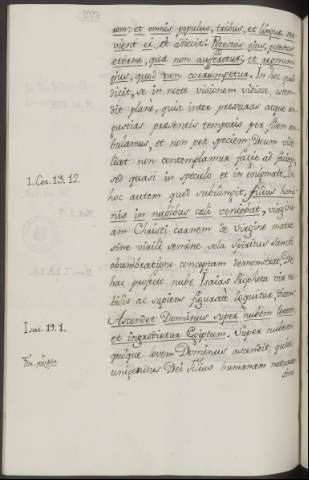 nem: et omnis populus, tribus, et linguæ ser-
vient ei, et adiecit: Potestas ejus, potestas
eterna, quæ non auferetur, et regnum
ejus, quod non corrumpetur. In hoc quod
dicit, se in nocte visionem vidisse, osten-
dit planè, quia inter pressuras atque an-
gustias presentis temporis per fidem am-
bulamus, et non per speciem: Deum vide-
licet non contemplamur facie ad faciem,
1. Cor. 13. 12.
sed quasi in speculo et in enigmate. In
hoc autem quod subiungit, filius homi-
nis in nubibus celi veniebat, virgine-
am Christi carnem de Virgine matre
sine virili semine sola Spiritus sancti
obumbratione conceptam demonstrat. De
hac profecto nube Isaias Propheta vir no-
bilis ac sapiens figuratè loquitur, dicens
Isai. 19. 1.
Ascendet Dominus super nubem levem,
et ingredietur Egiptum. Super nubem
quoque levem Dominus ascendit, quia
unigenitus Dei filius humanam naturam